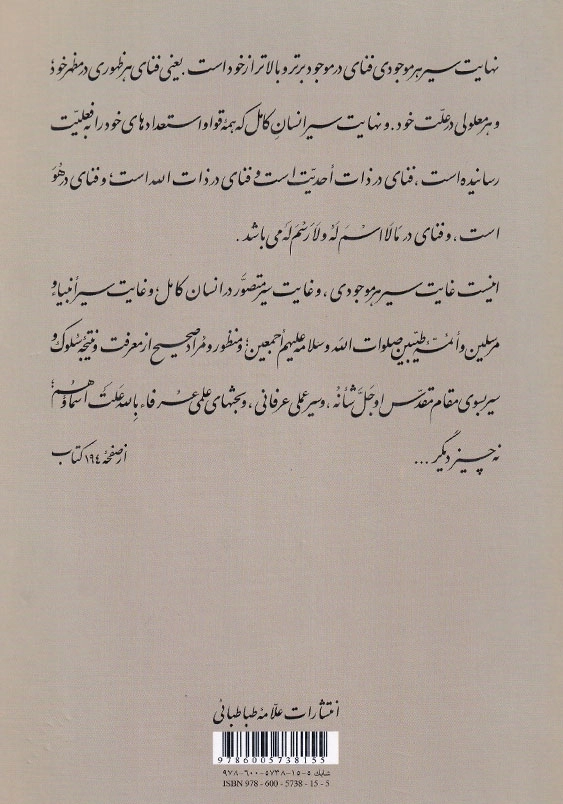 نهایت سیر هر موجودی فنای در موجود برتر و بالاتر از خود است. یعنی فنای هر ظهوری در مظهر خود؛
و هر معلولی در علّت خود. و نهایت سیر انسان کامل که همهٔ قوا و استعدادهای خود را به فعلیّت
رسانیده است، فنای در ذات أحدیّت است و فنای در ذات الله است؛ و فنای در هُوَ
است، و فنای در مَا لَا اسْمَ لَهُ وَلَا رَسْمَ لَهُ می‌باشد.
اینست غایت سیر هر موجودی، و غایت سیر متصوَّر در انسان کامل؛ و غایت سیر أنبیاء و
مرسلین و أئمّهٔ طیّبین صلوات الله و سلامه علیهم أجمعین؛ و منظور و مُراد صحیح از معرفت و نتیجهٔ سلوک و
سیر بسوی مقام مقدّس او جَلَّ شَأنُهُ، و سیر عملی عرفانی، و بحثهای علمی عرفاء بِالله عَلَتْ أسْمَاؤُهُم؛
نه چیز دیگر ...
از صفحهٔ ۱۹۴ کتاب
انتشارات علّامهٔ طباطبائی
9786005738155
شابك ۵-۱۵-۵۷۳۸-۶۰۰-۹۷۸
ISBN 978 - 600 - 5738 - 15 - 5